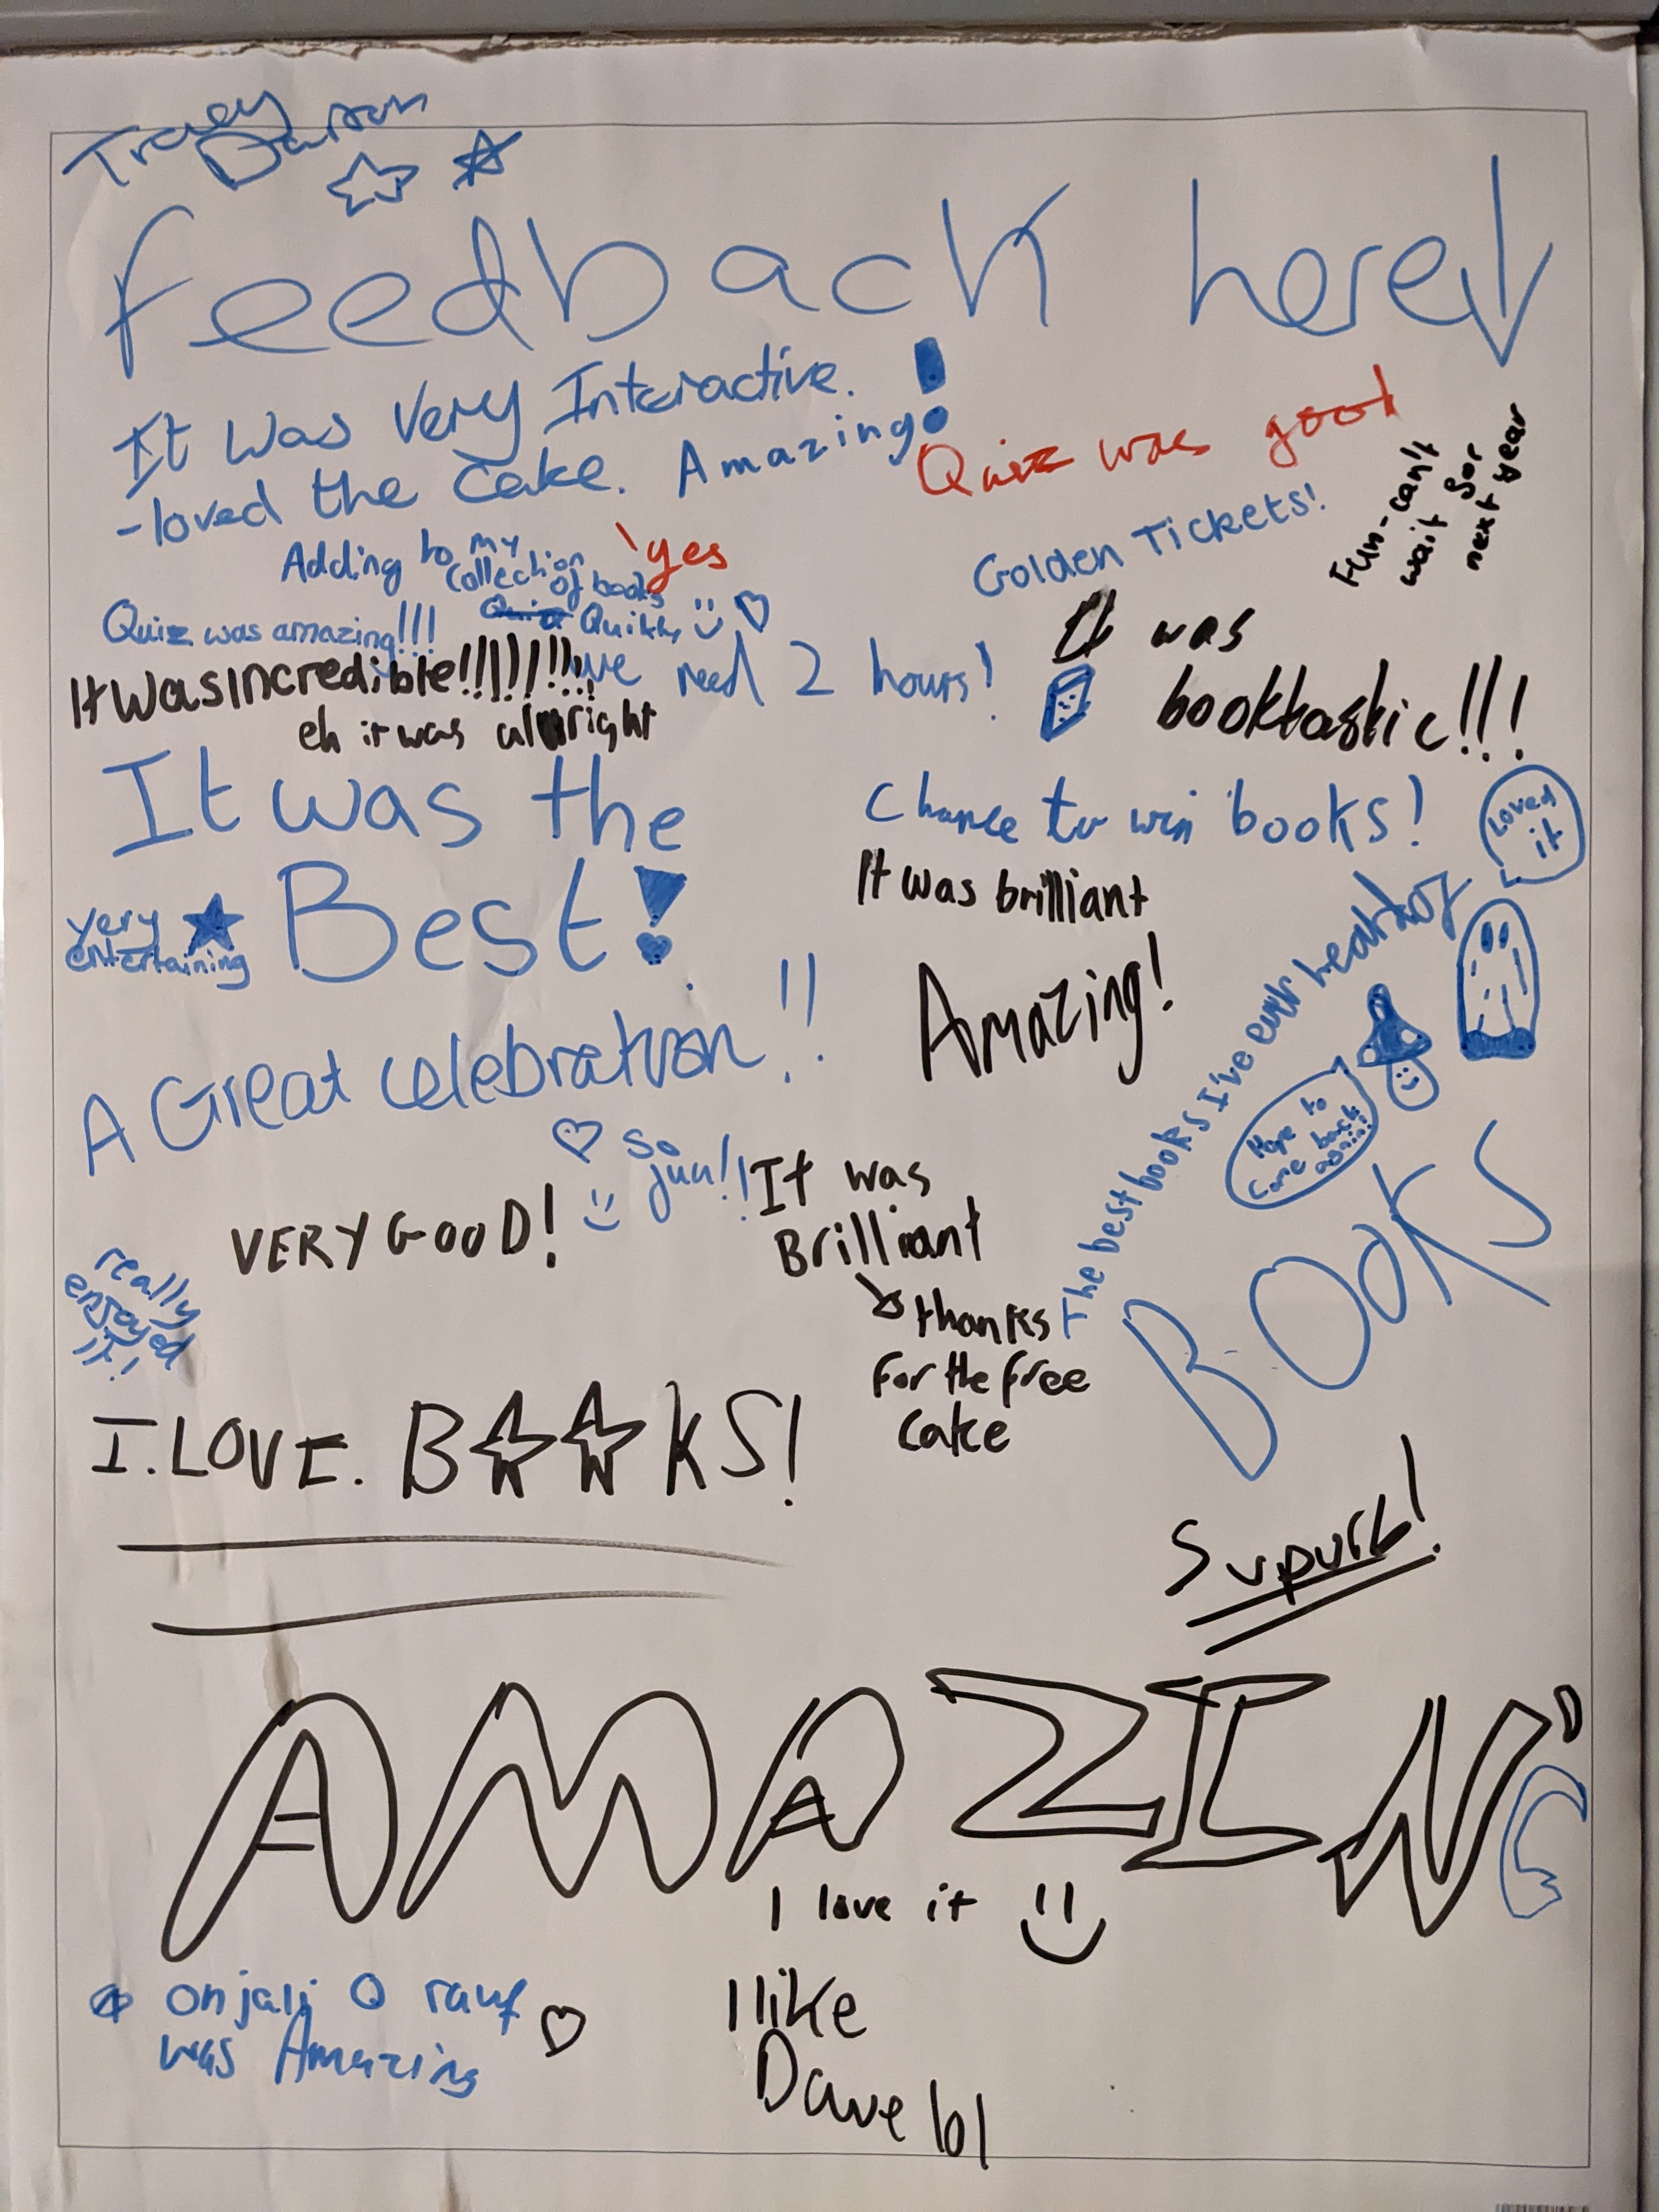 Tracey
Darson
Feedback here
It Was Very Interactive.
-loved the Cake. Amazing!
Quiz was good
Fun-can't
wait for
next year
Golden Tickets!
Adding to my
collection
of books
Quikly
yes
Quiz was amazing!!!
It was incredible!!!!!!!!!!
we need 2 hours!
eh it was alright
It was
booktastic!!!
It was the
Best!
very
entertaining
Chance to win books!
Loved
it
It was brilliant
Amazing!
A Great celebration!!
The best books I've ever heard of
Hope to
come back
again!!
BOOKS
So
fun!!
VERY GOOD!
It was
Brilliant
thanks
for the free
cake
really
enjoyed
it!
I.LOVE. B☆☆KS!
Supurb!
AMAZING
I love it
onjali Q rauf
was Amazing
I like
Dave lol